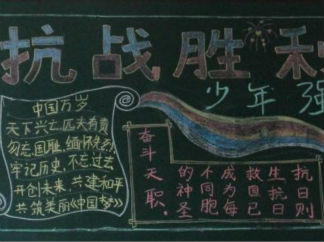 抗战胜利
少年强
中国万岁
天下兴亡匹夫有责
勿忘国耻,缅怀先烈
牢记历史,不忘过去
开创未来,共建和平
共筑美丽《中国梦》
抗日则
生抗日
救国已
成为每
不同胞
的神圣
天职。
奋斗